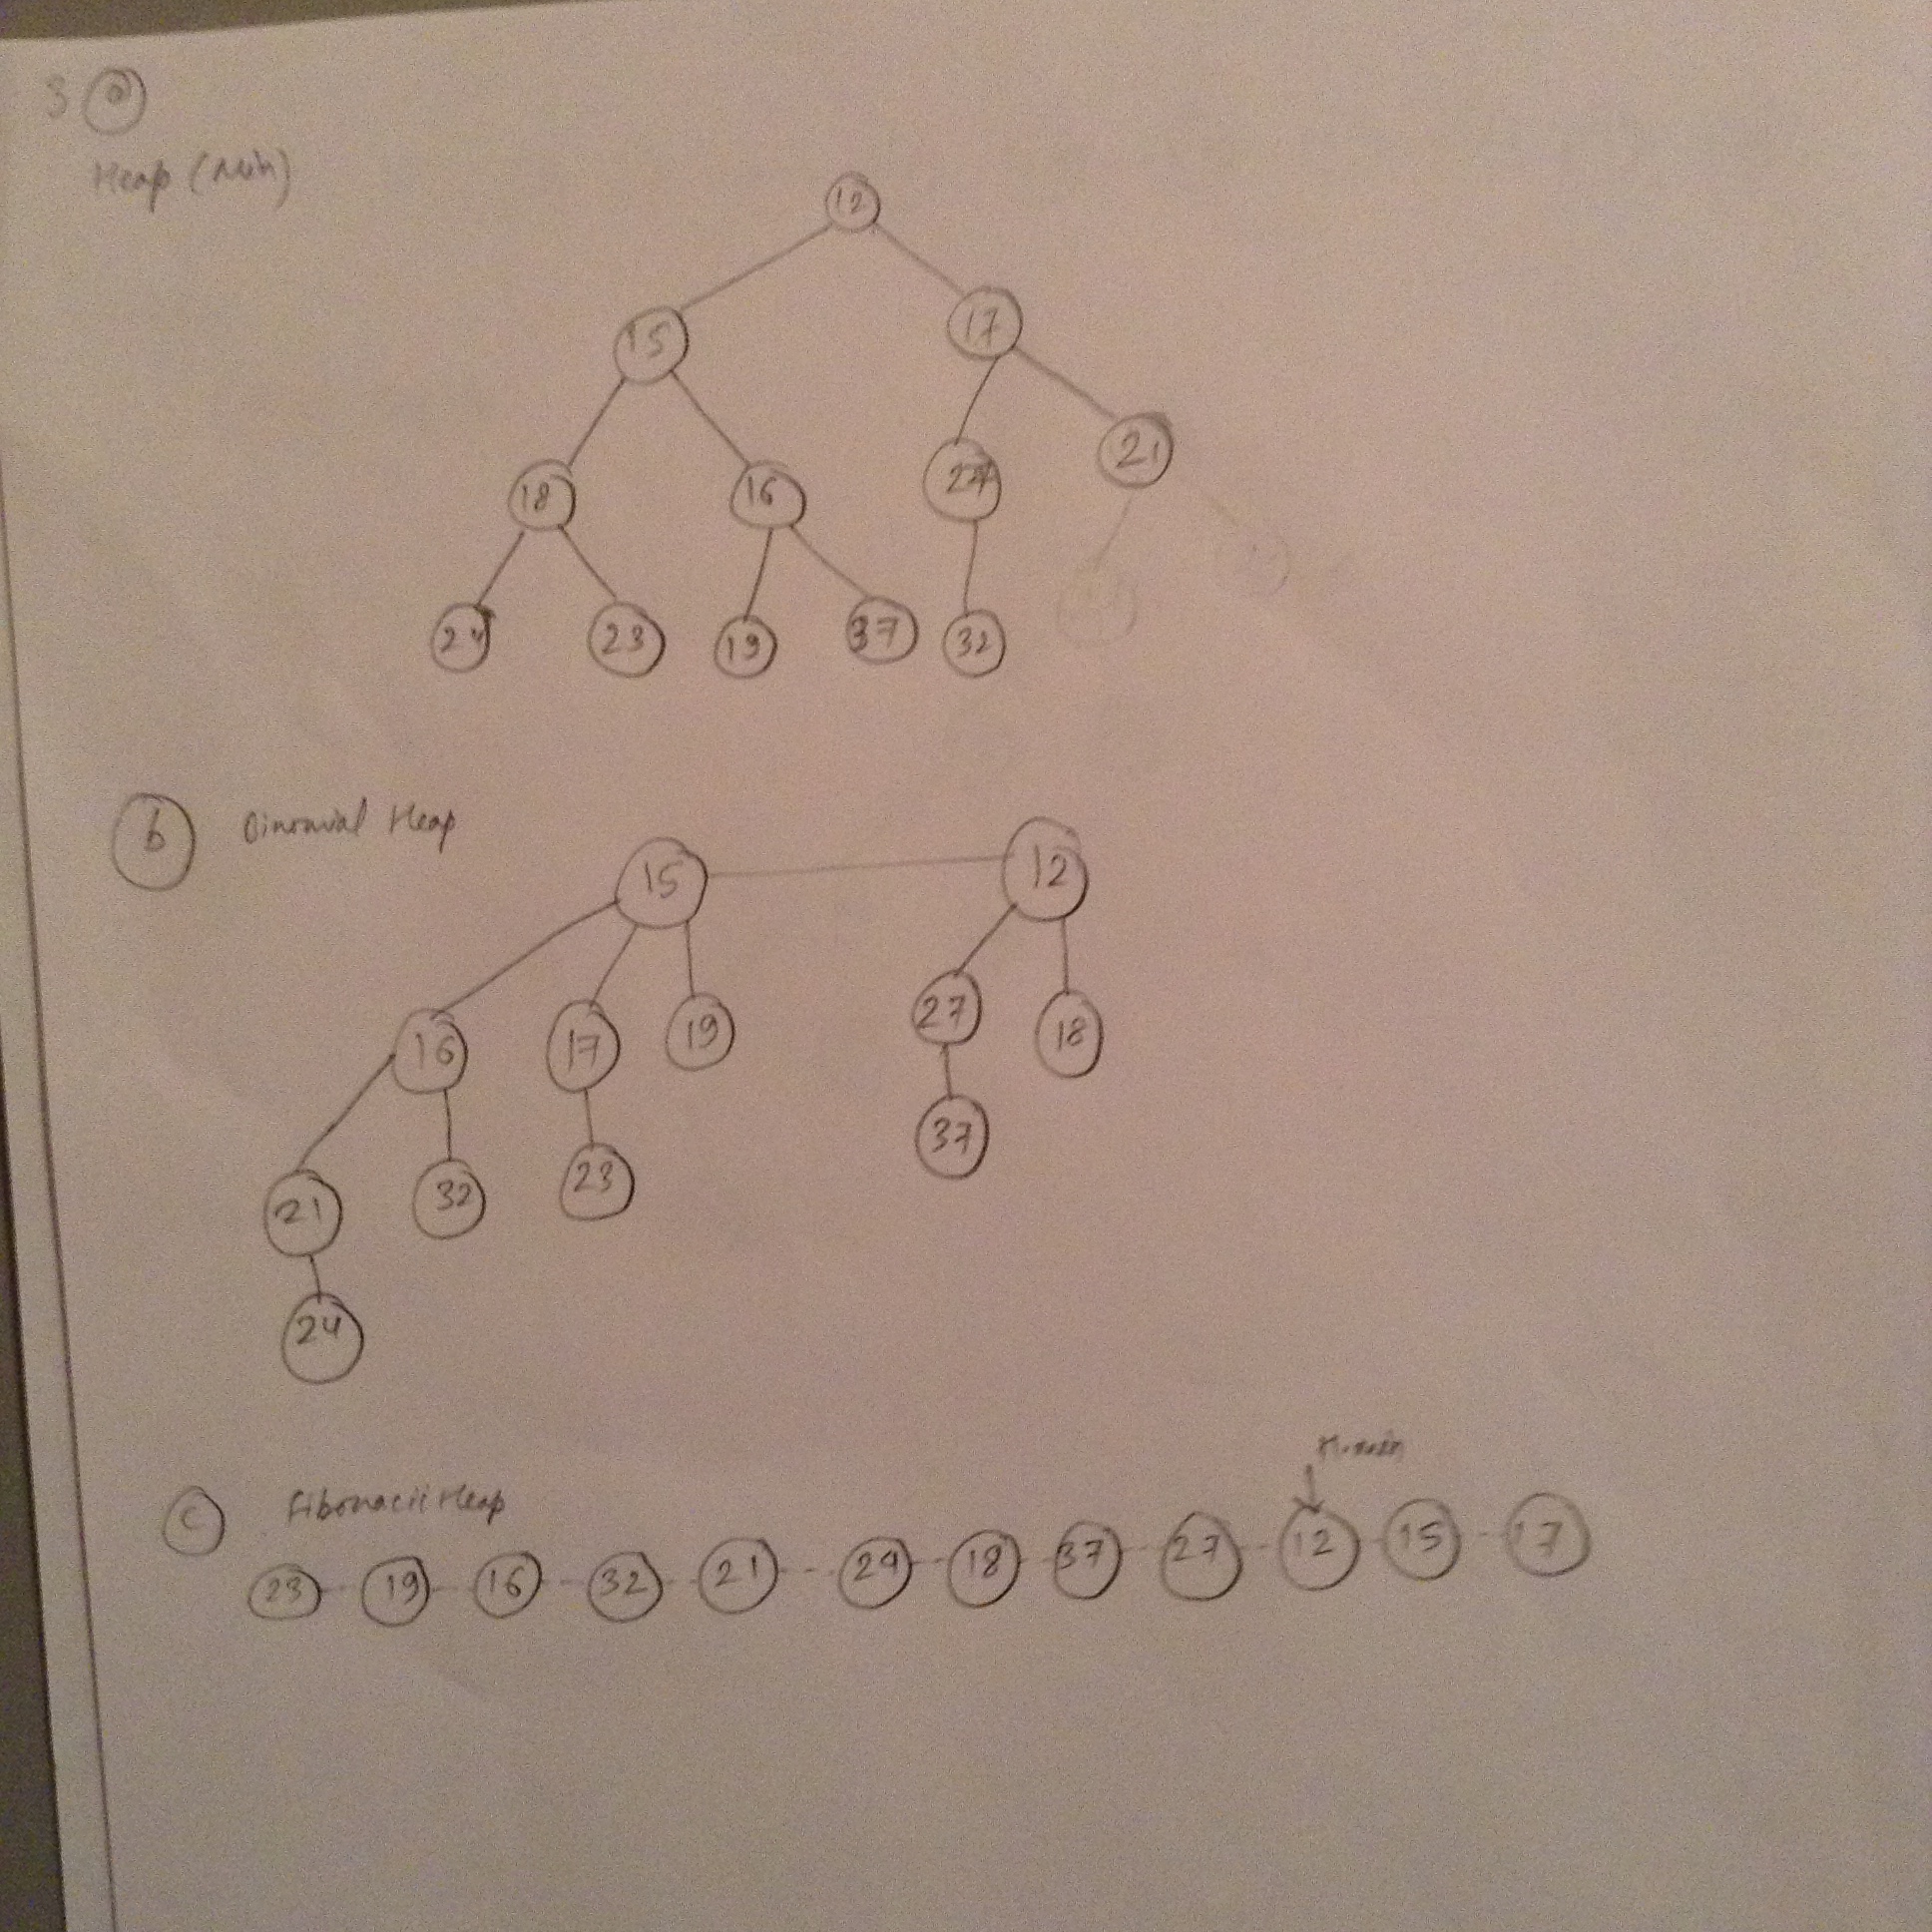 3 a
Heap (Min)
12
15 17
18 16 27 21
24 23 19 37 32
b Binomial Heap
15 12
16 17 19 27 18
21 32 23 37
24
H.min
c Fibonacii Heap
23 19 16 32 21 24 18 37 27 12 15 17